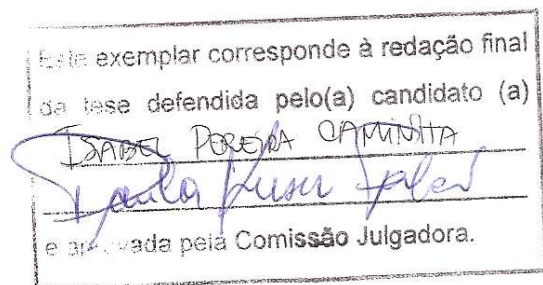 Este exemplar corresponde à redação final
da tese defendida pelo(a) candidato (a)
ISABEL PEREIRA CAMINHA
e aprovada pela Comissão Julgadora.